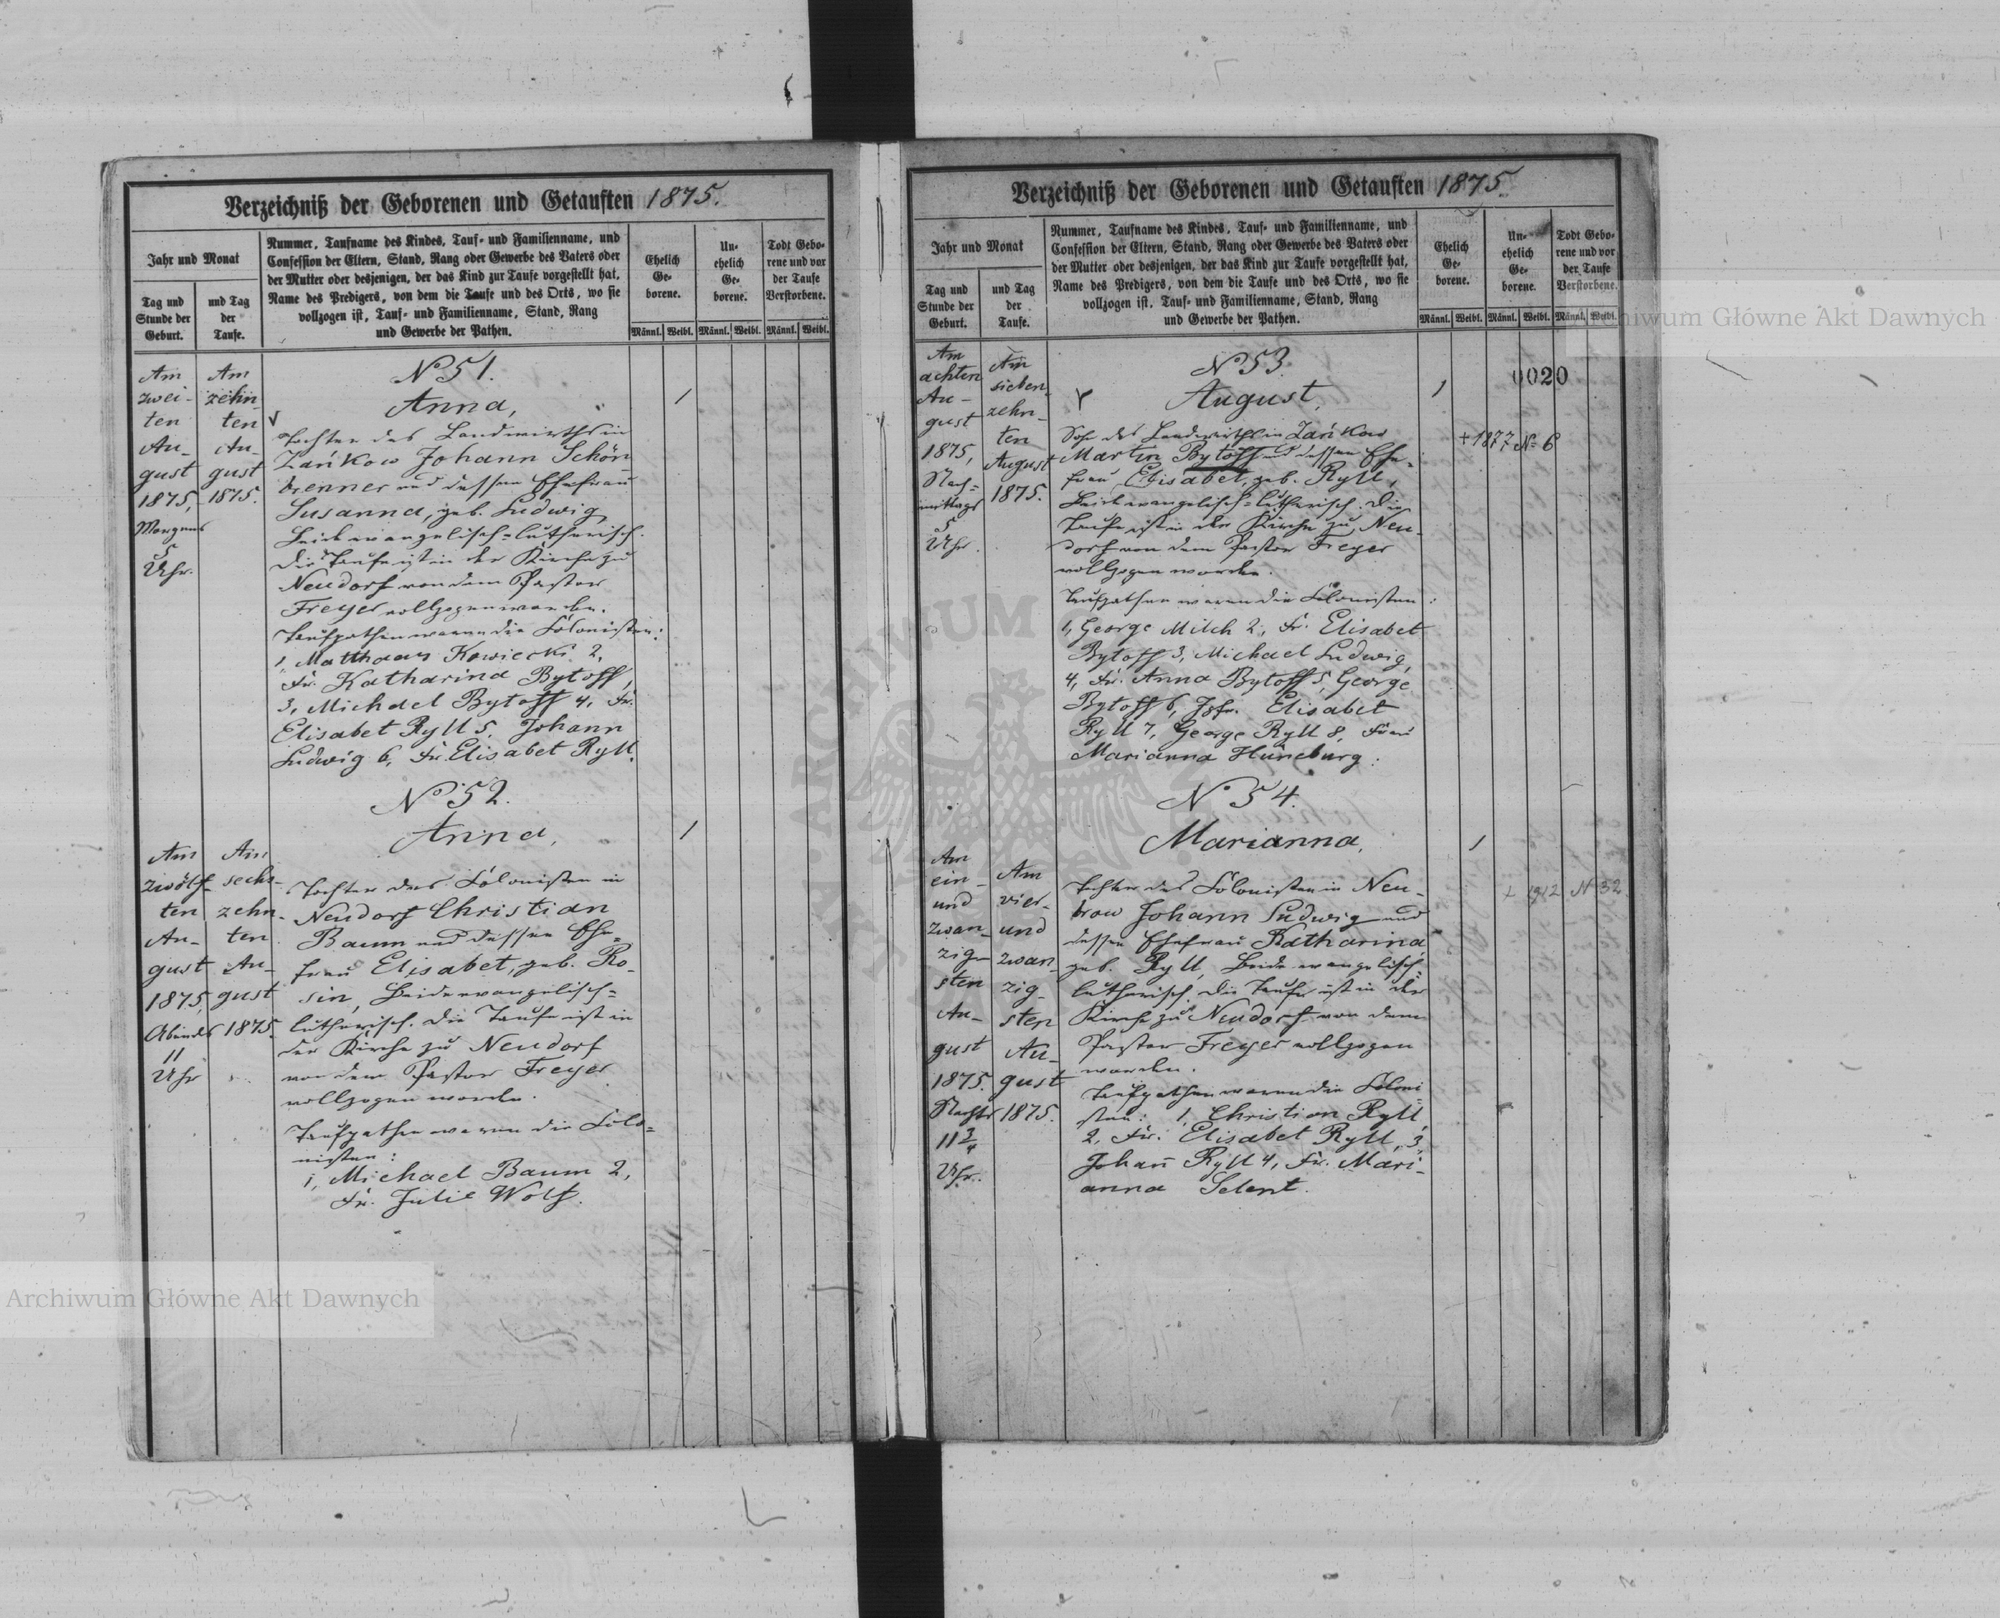 Verzeichniß der Geborenen und Getauften 1875.
Jahr und Monat
Tag und
Stunde der
Geburt.
und Tag
der
Taufe.
Nummer, Taufname des Kindes, Tauf- und Familienname, und
Confession der Eltern, Stand, Rang oder Gewerbe des Vaters oder
der Mutter oder desjenigen, der das Kind zur Taufe vorgestellt hat,
Name des Predigers, von dem die Taufe und des Orts, wo sie
vollzogen ist, Tauf- und Familienname, Stand, Rang
und Gewerbe der Pathen.
Ehelich
Ge-
borene.
Un-
ehelich
Ge-
borene.
Todt Gebo-
rene und vor
der Taufe
Verstorbene.
Männl. Weibl. Männl. Weibl. Männl. Weibl.
Am
zwei-
ten
Au-
gust
1875,
Morgens
5
Uhr.
Am
zehn-
ten
Au-
gust
1875.
N 51.
Anna,
1
Tochter des Landwirths in
Zańkow Johann Schön-
brenner und dessen Ehefrau
Susanna, geb. Ludwig,
Beide evangelisch=lutherisch.
Die Taufe ist in der Kirche zu
Neudorf von dem Pastor
Freyer vollzogen worden.
Taufpathen waren die Colonisten:
1, Matthaus Kowiecki 2,
Fr. Katharina Bytoff,
3, Michael Bytoff 4, Fr.
Elisabet Ryll 5, Johann
Ludwig 6, Fr. Elisabet Ryll.
Am
zwölf-
ten
Au-
gust
1875,
Abends
11
Uhr
Am
sechs-
zehn-
ten
Au-
gust
1875.
N 52.
Anna,
1
Tochter des Colonisten in
Neudorf Christian
Baum und dessen Ehe-
frau Elisabet, geb. Ro-
sin, Beide evangelisch=
lutherisch. Die Taufe ist in
der Kirche zu Neudorf
von dem Pastor Freyer
vollzogen worden.
Taufpathen waren die Colo=
nisten:
1, Michael Baum 2,
Fr. Julie Wolf.
Verzeichniß der Geborenen und Getauften 1875.
Jahr und Monat
Tag und
Stunde der
Geburt.
und Tag
der
Taufe.
Nummer, Taufname des Kindes, Tauf- und Familienname, und
Confession der Eltern, Stand, Rang oder Gewerbe des Vaters oder
der Mutter oder desjenigen, der das Kind zur Taufe vorgestellt hat,
Name des Predigers, von dem die Taufe und des Orts, wo sie
vollzogen ist, Tauf- und Familienname, Stand, Rang
und Gewerbe der Pathen.
Ehelich
Ge-
borene.
Un-
ehelich
Ge-
borene.
Todt Gebo-
rene und vor
der Taufe
Verstorbene.
Männl. Weibl. Männl. Weibl. Männl. Weibl.
0020
Am
achten
Au-
gust
1875,
Nach=
mittags
5
Uhr.
Am
sieben-
zehn-
ten
August
1875.
N 53.
August,
1
+ 1877 N 6
Sohn des Landwirths in Zańkow
Martin Bytoff und dessen Ehe-
frau Elisabet, geb. Ryll,
Beide evangelisch=lutherisch. Die
Taufe ist in der Kirche zu Neu-
dorf von dem Pastor Freyer
vollzogen worden.
Taufpathen waren die Colonisten:
1, George Milch 2, Fr. Elisabet
Bytoff 3, Michael Ludwig,
4, Fr. Anna Bytoff 5, George
Bytoff 6, Jgfr. Elisabet
Ryll 7, George Ryll 8, Frau
Marianna Hüneburg.
Am
ein-
und
zwan-
zig-
sten
Au-
gust
1875.
Nachts
11 3/4
Uhr.
Am
vier-
und
zwan-
zig-
sten
Au-
gust
1875.
N 54.
Marianna,
1
+ 1912 N 32
Tochter des Colonisten in Neu-
brow Johann Ludwig und
dessen Ehefrau Katharina
geb. Ryll, Beide evangelisch=
lutherisch. Die Taufe ist in der
Kirche zu Neudorf von dem
Pastor Freyer vollzogen
worden.
Taufpathen waren die Coloni-
sten: 1, Christian Ryll,
2, Fr. Elisabet Ryll, 3,
Johañ Ryll 4, Fr. Mari-
anna Selent.
Archiwum Główne Akt Dawnych
Archiwum Główne Akt Dawnych